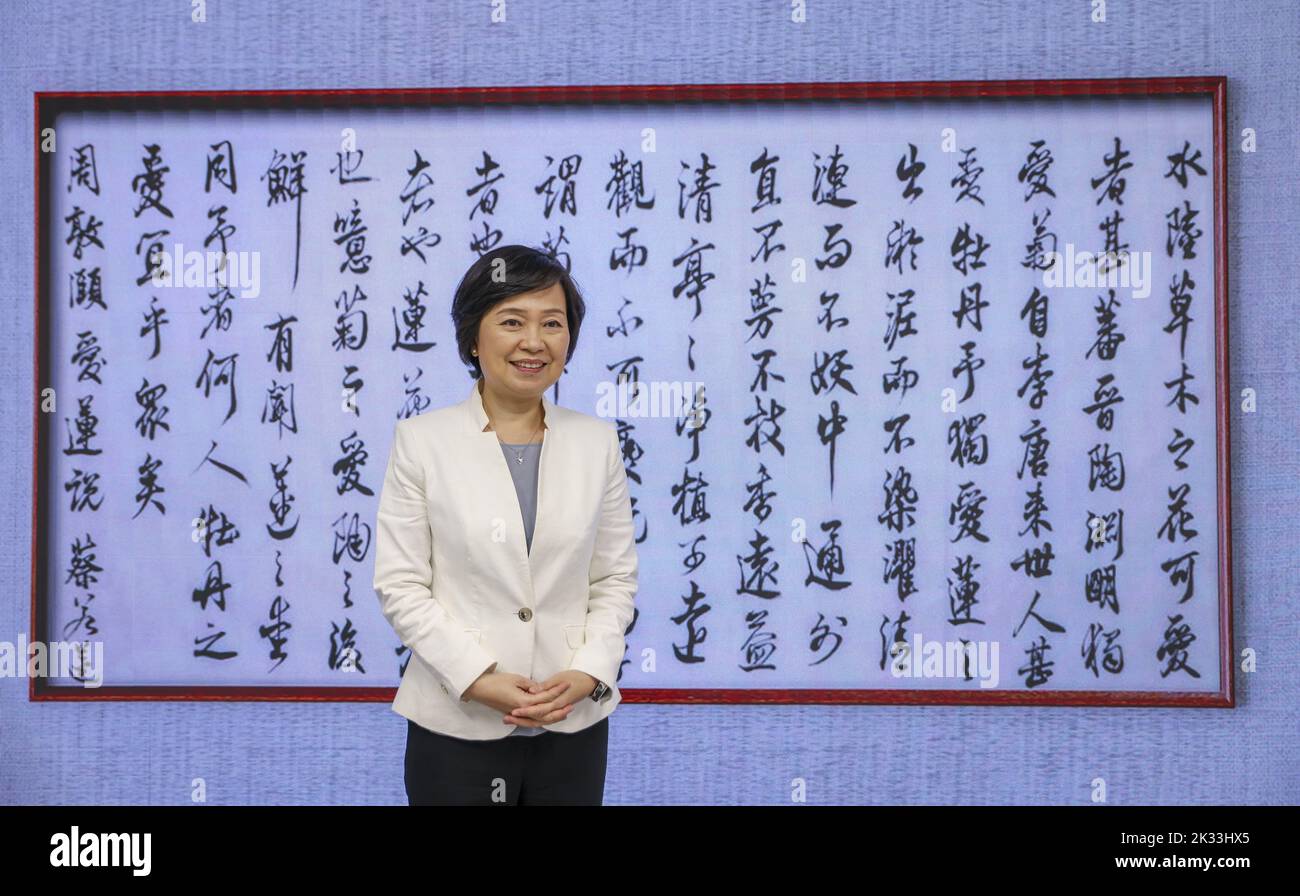 水陸草木之花可愛
者甚蕃晉陶淵明獨
愛菊自李唐來世人甚
愛牡丹予獨愛蓮之
出淤泥而不染濯清
漣而不妖中通外
直不蔓不枝香遠益
清亭亭淨植可遠
觀而不可褻玩
謂菊
者也
者也蓮花
也噫菊之愛陶之後
鮮有聞蓮之愛
同予者何人牡丹之
愛宜乎眾矣
周敦頤愛蓮說 蔡若蓮
alamy
Image ID: 2K33HX5
www.alamy.com